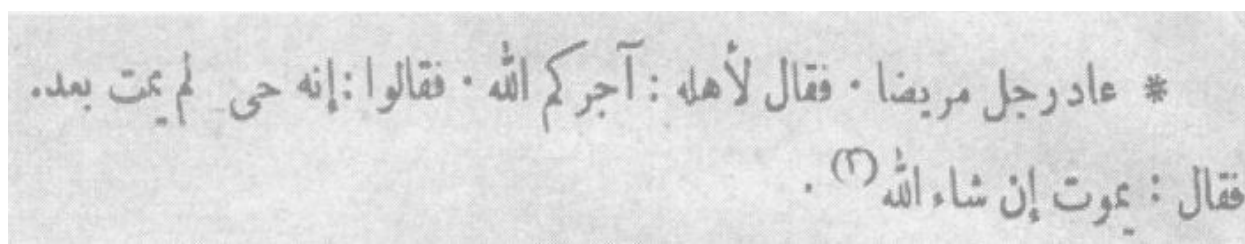 * عاد رجل مريضا · فقال لأهله : آجركم الله · فقالوا : إنه حى لم يمت بعد.
فقال : يموت إن شاء الله (٢) .